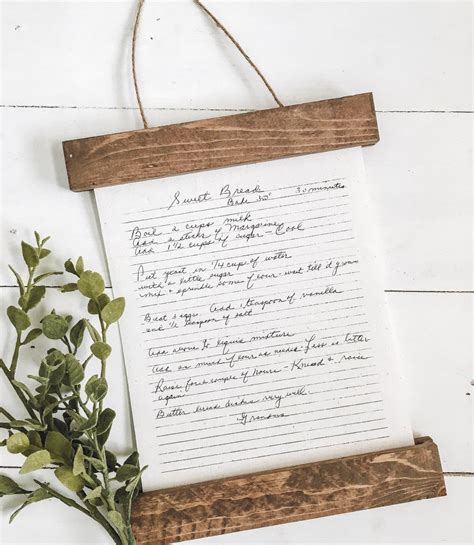 Sweet Bread
Bake 350° 30 minutes
Boil 2 cups milk
Add 2 sticks of Margarine
Add 1½ cups of sugar - Cool
Put yeast in ¼ cup of water
with a little sugar
mix & sprinkle some flour wait till it grows
Beat 5 eggs Add 1 teaspoon of vanilla
and ½ teaspoon of salt
Add above to liquid mixture
Add as much flour as needed Less is better
Raise for a couple of hours - Knead & raise
again
Butter bread dishes very well.
Grandma